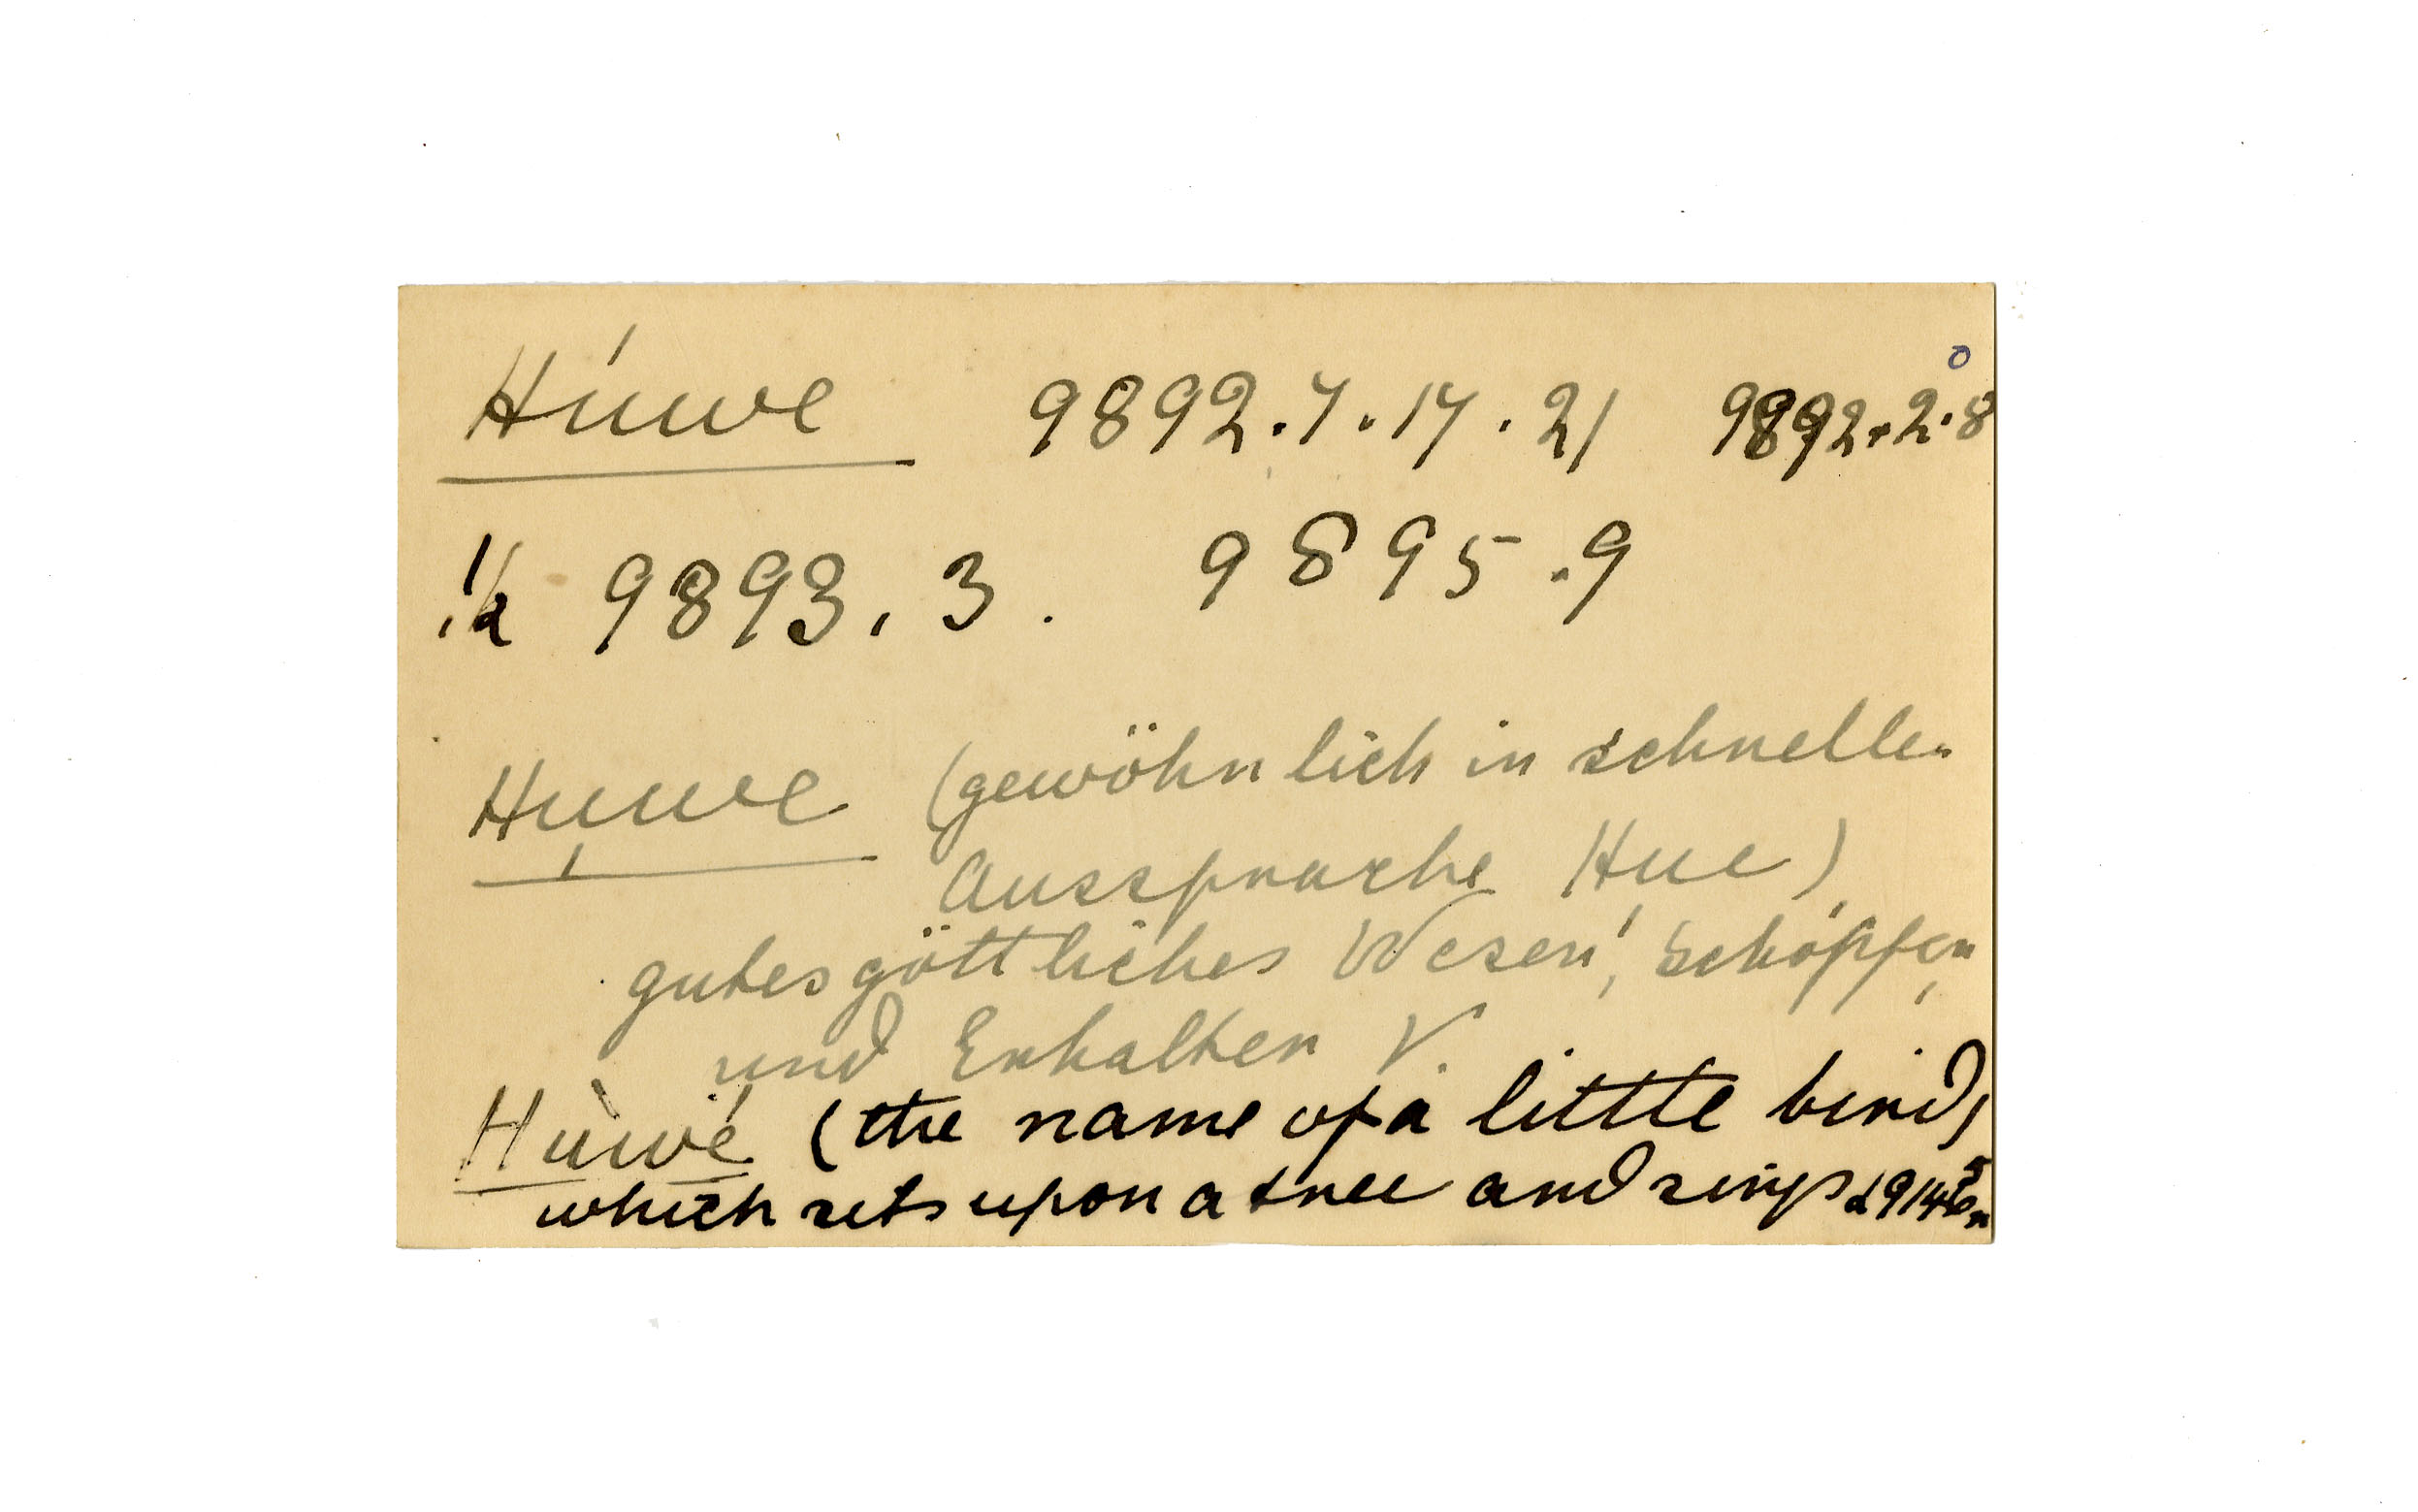 Húwe 9892.7.17.21 9892.2.8
½ 9893.3. 9895.9
Huwe (gewöhnlich in schneller
Aussprache Hue)
gutes göttliches Wesen, Schöpfer,
und Erhalter V.
Hùwé (the name of a little bird,
which sits upon a tree and sings